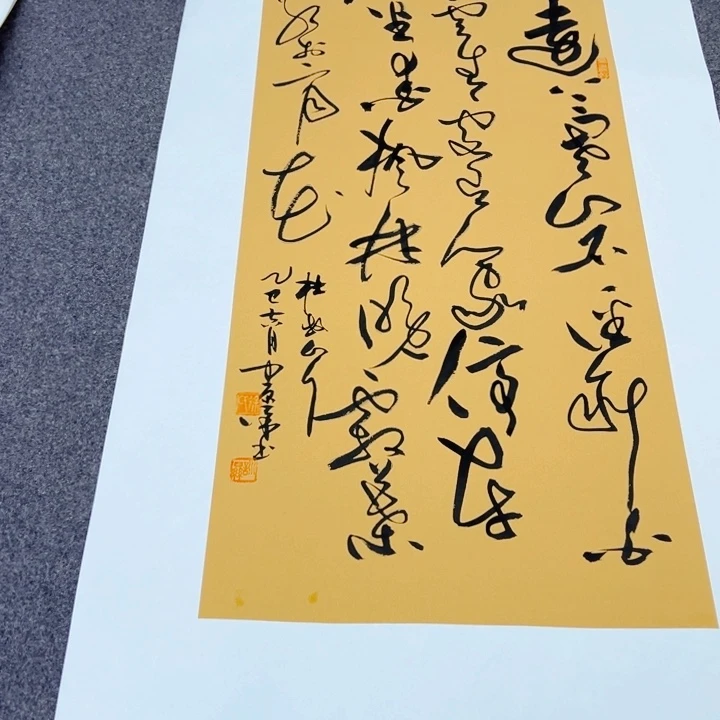 遠上寒山石径斜白
雲生處有人家停車
坐愛楓林晚霜葉
紅於二月花
杜牧山行
乙巳六月中原書